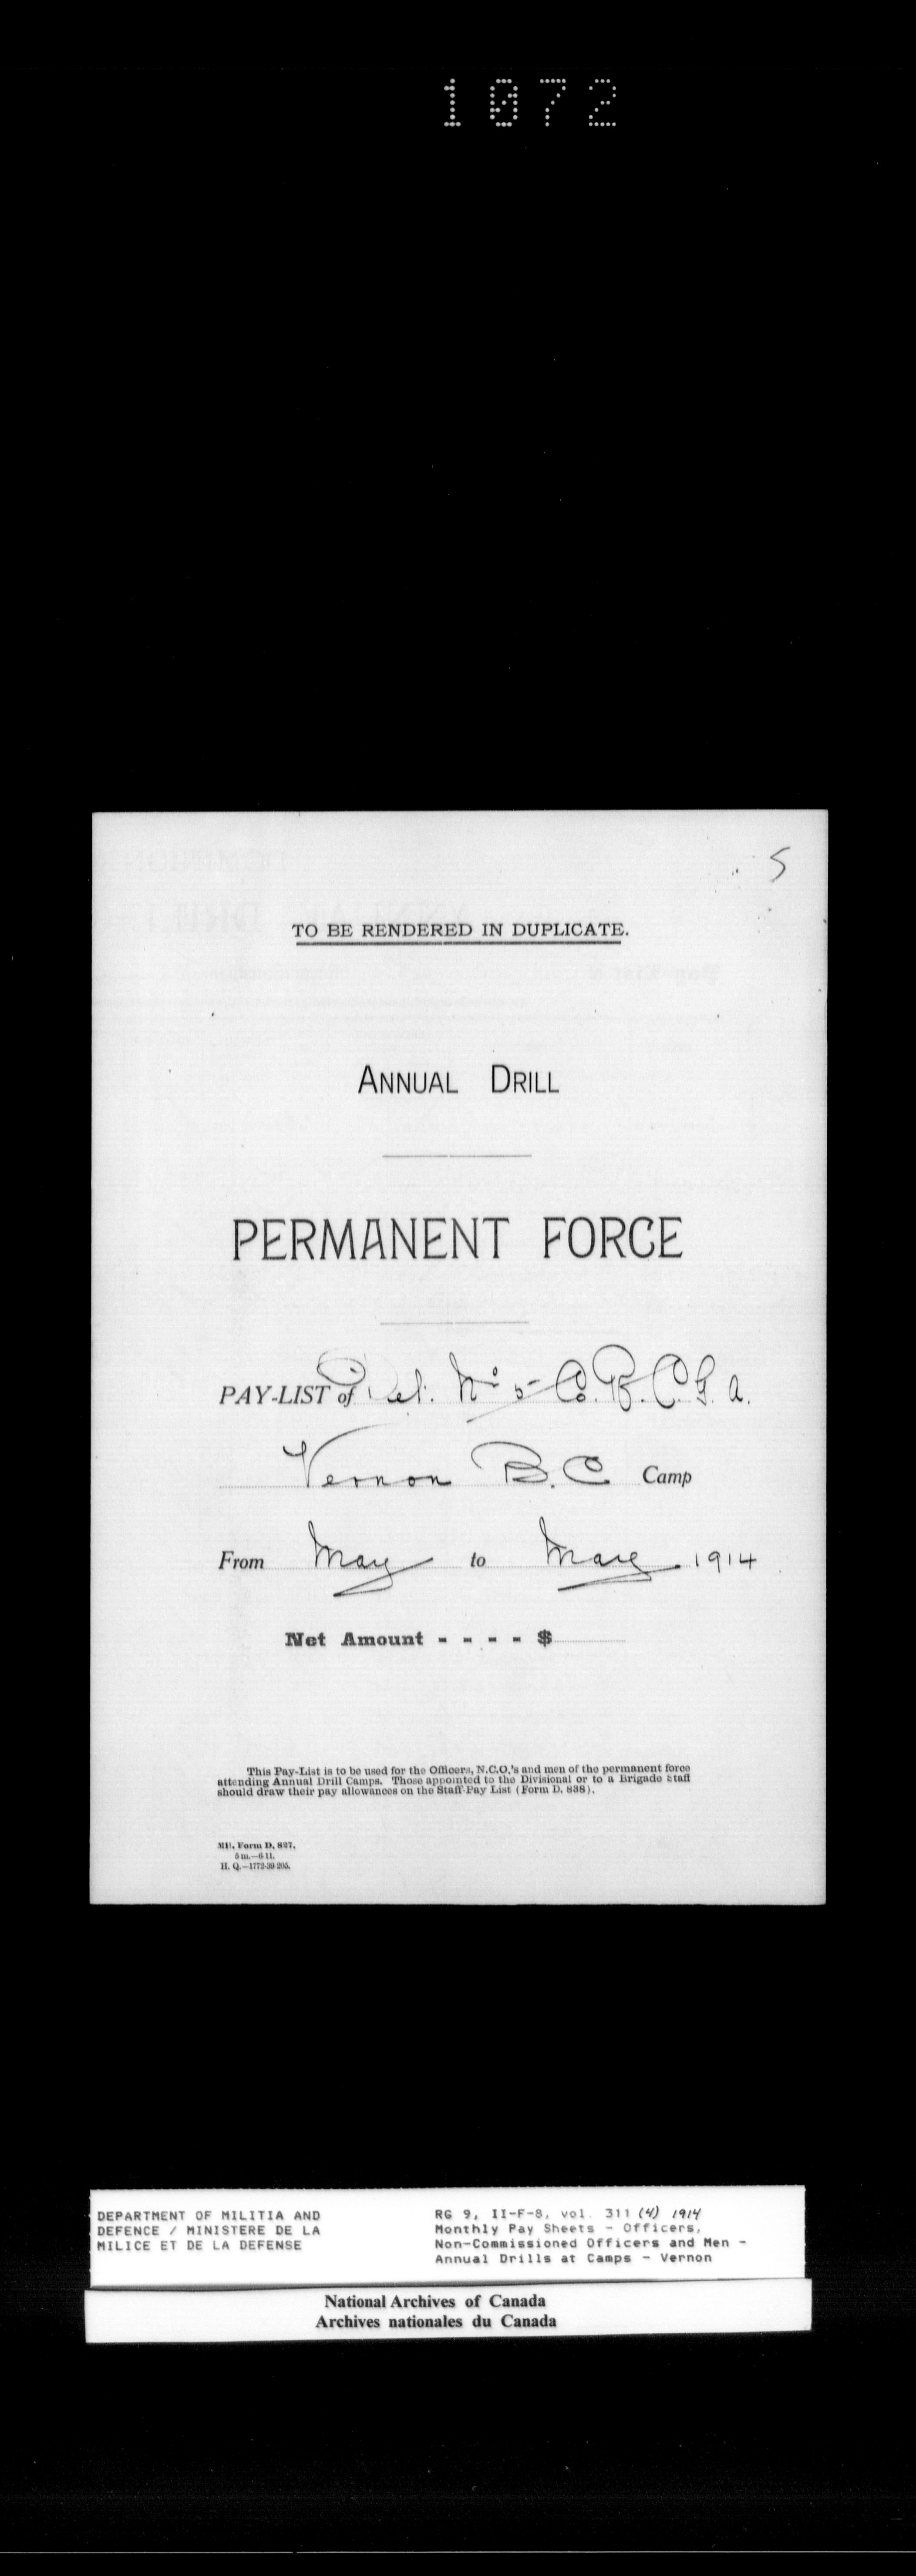 1072
5
TO BE RENDERED IN DUPLICATE.
ANNUAL DRILL
PERMANENT FORCE
PAY-LIST of Det. No 5 Co. R.C.G.A.
Vernon B.C Camp
From May to May 1914
Net Amount - - - - $
This Pay-List is to be used for the Officers, N.C.O.'s and men of the permanent force
attending Annual Drill Camps. Those appointed to the Divisional or to a Brigade Staff
should draw their pay allowances on the Staff Pay List (Form D. 838).
Mil. Form D. 827.
5 m.—6 11.
H. Q.—1772-39 205.
DEPARTMENT OF MILITIA AND
DEFENCE / MINISTERE DE LA
MILICE ET DE LA DEFENSE
RG 9, II-F-8, vol. 311 (4) 1914
Monthly Pay Sheets - Officers,
Non-Commissioned Officers and Men -
Annual Drills at Camps - Vernon
National Archives of Canada
Archives nationales du Canada